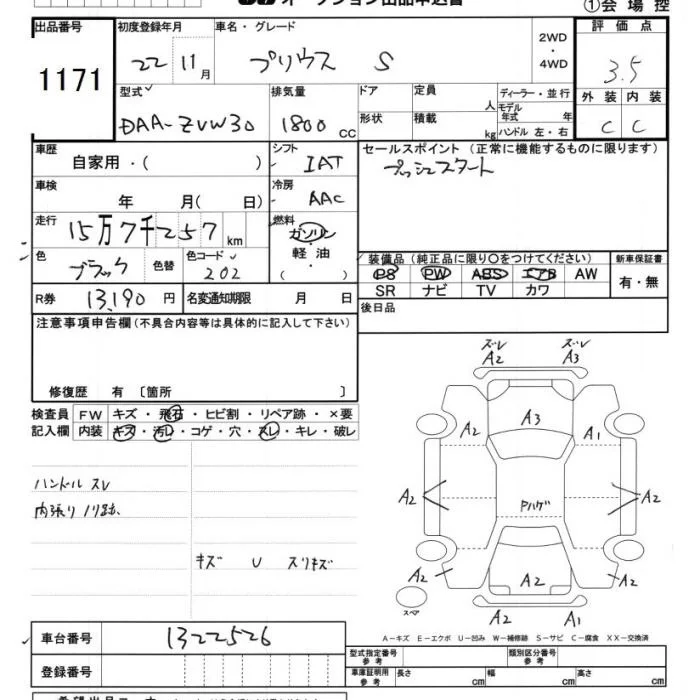 オークション出品申込書
①会場控
出品番号
1171
初度登録年月
22 11月
車名・グレード
プリウス S
2WD
・
4WD
評価点
3.5
外装 内装
C C
型式
DAA-ZVW30
排気量
1800 CC
ドア
形状
定員
人
積載
kg
ディーラー・並行
モデル年式 年
ハンドル 左・右
車歴
自家用・( )
シフト
IAT
セールスポイント (正常に機能するものに限ります)
プッシュスタート
車検
年 月( 日)
冷房
AAC
走行
15万7千257km
燃料
ガソリン
・
軽油
・
( )
色
ブラック
色替
色コード
202
装備品 (純正品に限り〇をつけてください)
PS PW ABS エアB AW
SR ナビ TV カワ
新車保証書
有・無
R券
13,190 円
名変通知期限 月 日
後日品
注意事項申告欄(不具合内容等は具体的に記入して下さい)
修復歴 有 〔箇所 〕
検査員 FW キズ・飛石・ヒビ割・リペア跡・×要
記入欄 内装 キズ・汚レ・コゲ・穴・スレ・キレ・破レ
ハンドル スレ
内張り ノリ跡.
キズ U スリキズ
ズレ ズレ
A2 A3
A3
A2 A1
A2 A2
Pハゲ
A2 A2 A2
スペア
A2 A1
A-キズ E-エクボ U-凹み W-補修跡 S-サビ C-腐食 XX-交換済
車台番号
1322526
登録番号
型式指定番号
参考
類別区分番号
参考
車庫証明用
参考
長さ cm
幅 cm
高さ cm